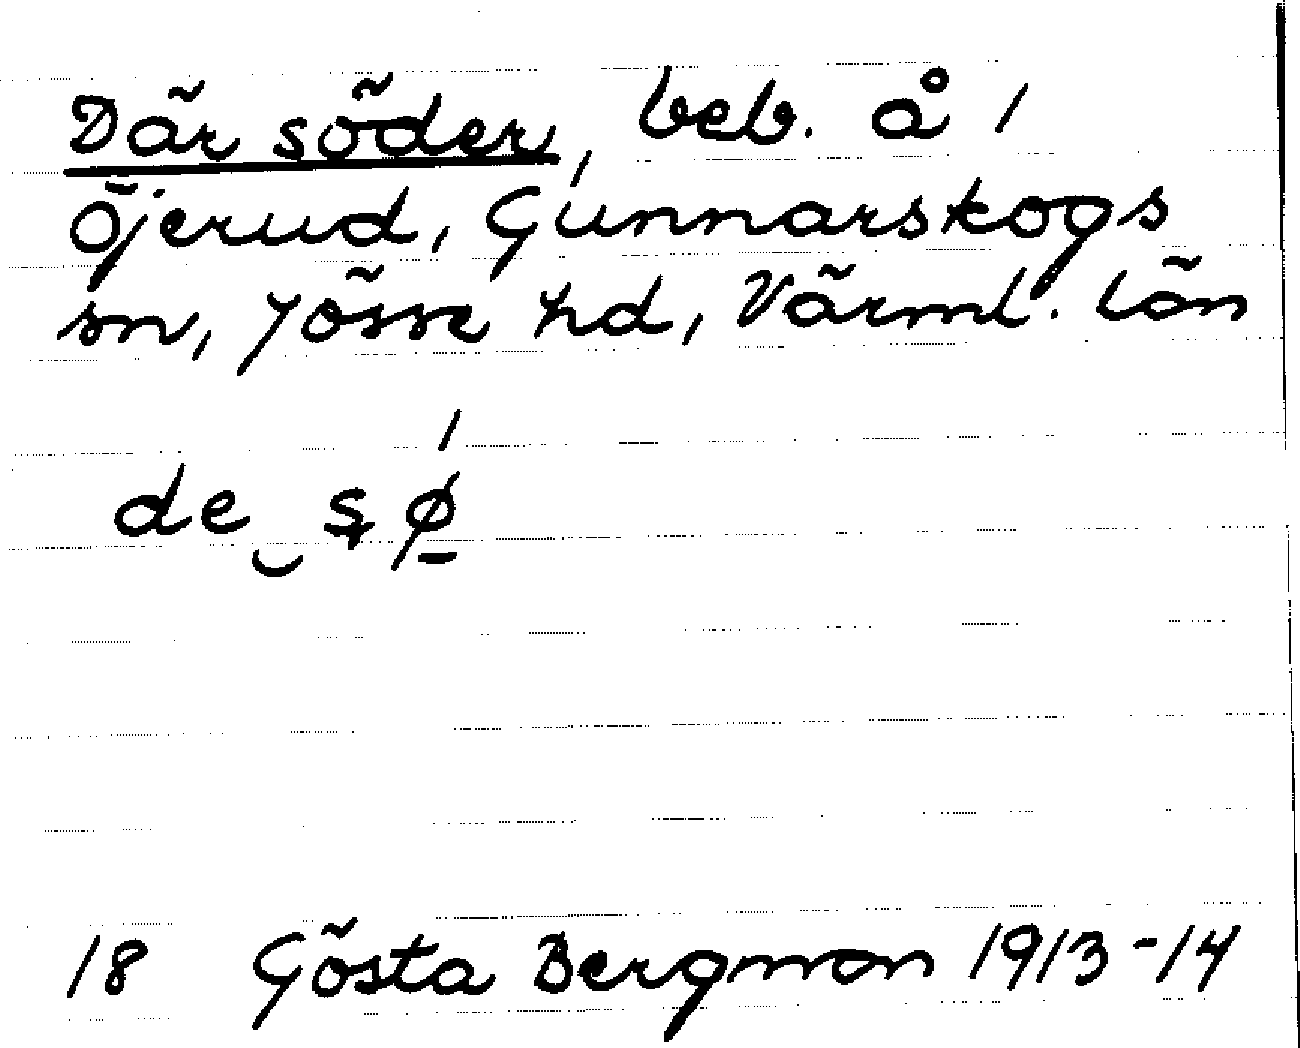 Där söder, beb. å 1
Öjerud, Gunnarskogs
sn, Jösse hd, Värml. län
de‿s ǿ
18 Gösta Bergman 1913-14